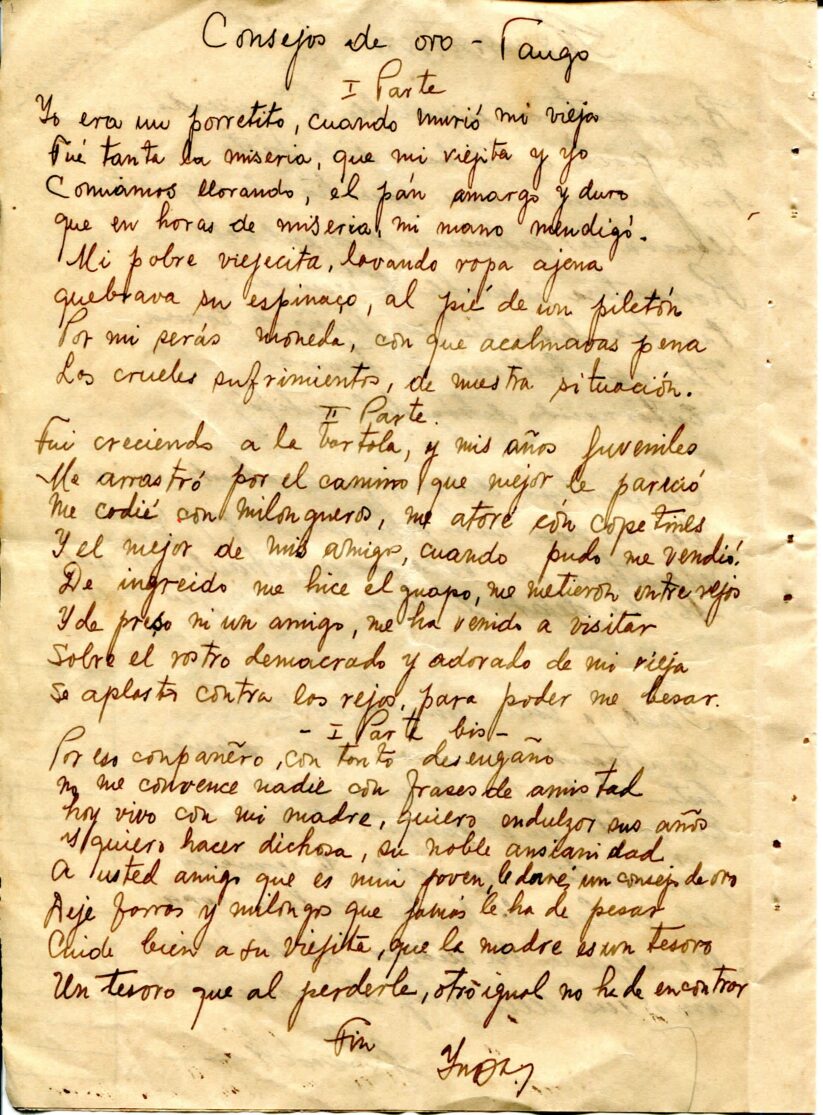 Consejos de oro - Tango
I Parte
Yo era un porretito, cuando murió mi viejo
Fué tanta la miseria, que mi viejita y yo
Comiámos llorando, el pán amargo y duro
que en horas de miseria, mi mano mendigó.
Mi pobre viejecita, lavando ropa ajena
quebrava su espinaço, al pié de un piletón
Por mi serás moneda, con que acalmavas pena
Los crueles sufrimientos, de nuestra situación.
II Parte.
Fui creciendo a la bartola, y mis años juveniles
Me arrastró por el camino que mejor le pareció
Me codié con milongueros, me atoré cón copetines
Y el mejor de mis amigo, cuando pudo me vendió.
De ingreido me hice el guapo, me metieron entre rejos
Y de preso ni un amigo, me ha venido a visitar
Sobre el rostro demacrado y adorado de mi vieja
Se aplasto contra los rejos, para poder me besar.
- I Parte bis -
Por eso conpañero, con tonto desengaño
no me convence nadie con frases de amistad
hoy vivo con mi madre, quiero endulzor sus años
y quiero hacer dichosa, su noble ansianidad
A usted amigo que es mui joven, le daré un consejo de oro
Deje farras y milongos que jamás le ha de pesar
Cuide bien a su viejita, que la madre es un tesoro
Un tesoro que al perderle, otro igual no ha de encontrar
Fin